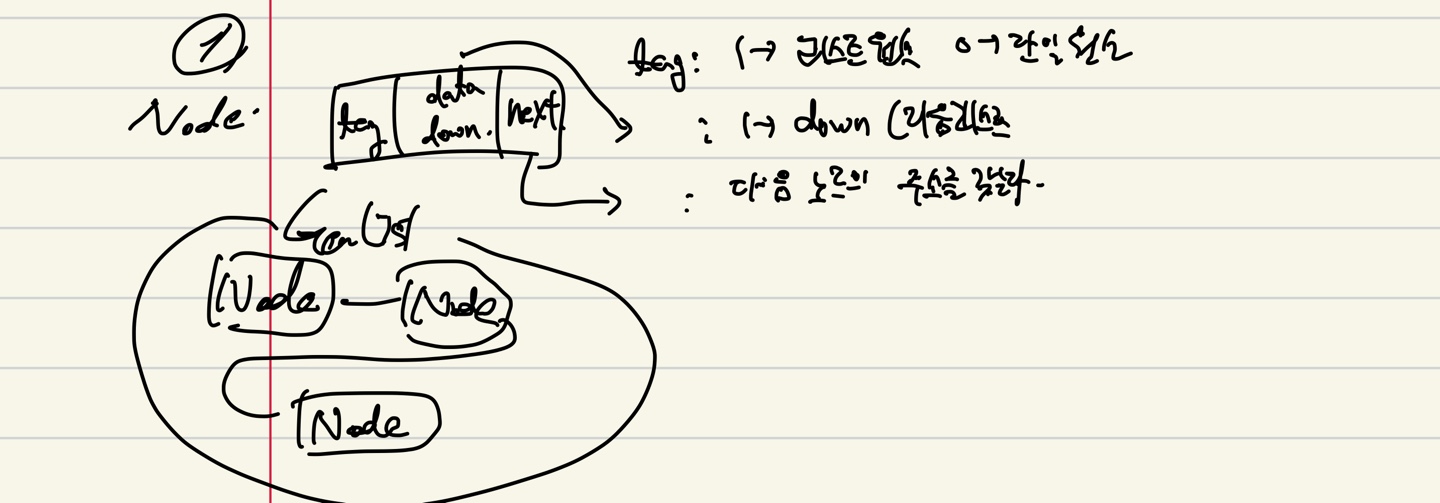 ①
Node:
tag
data
down.
next
tag: 1→ 리스트 원소 0→ 단일 원소
: 1→ down (다음 리스트
: 다음 노드의 주소를 갖는다.
Gen List
Node
Node
Node